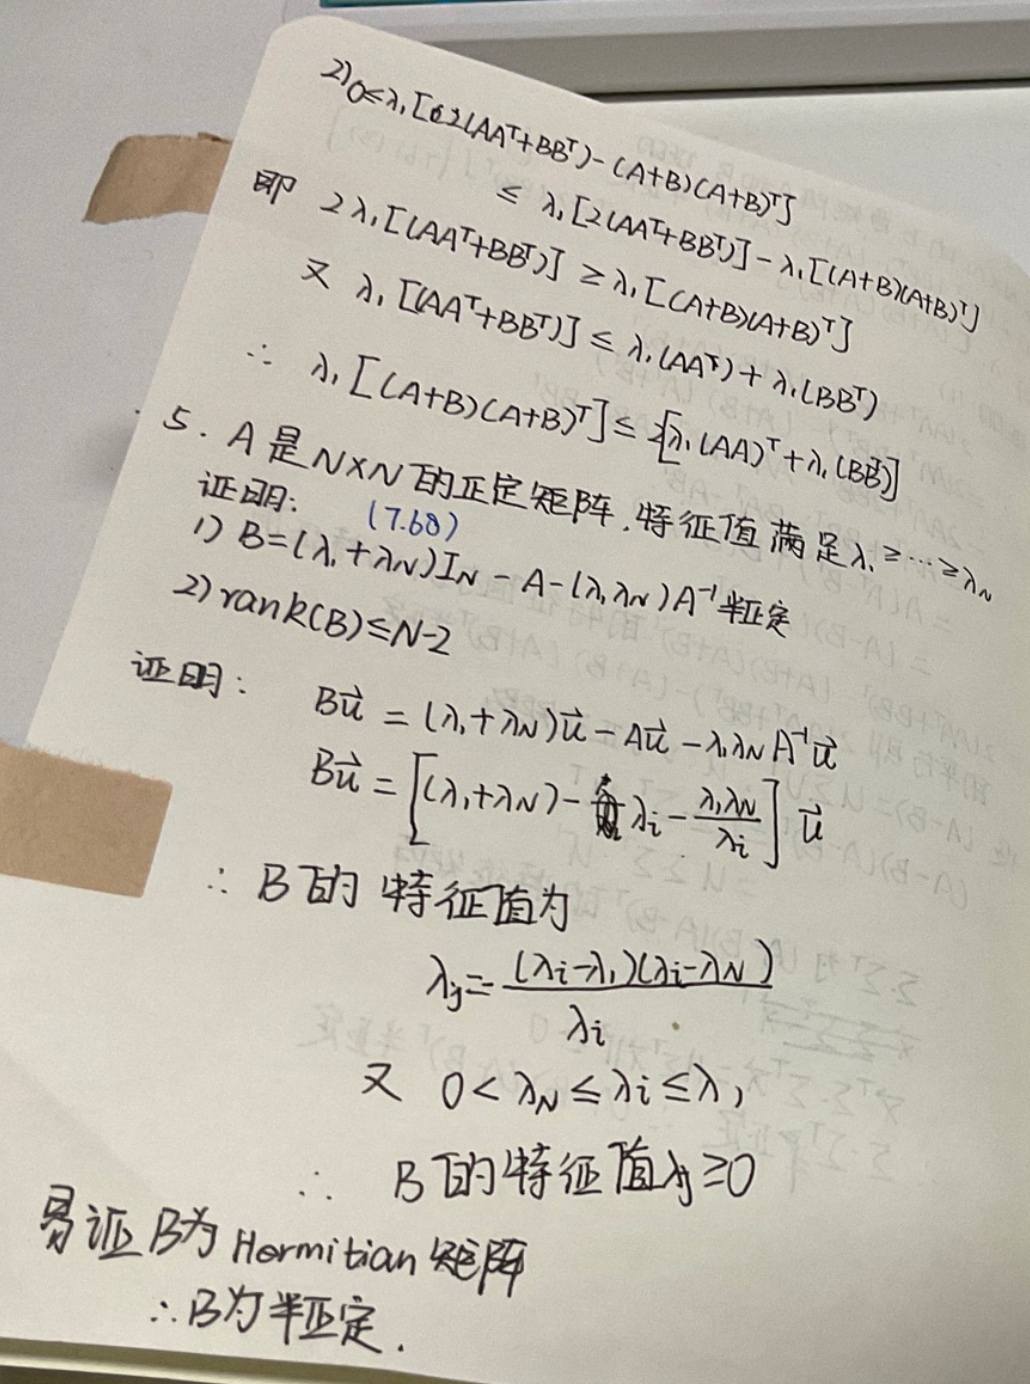 2) 0≤λ₁[2(AAᵀ+BBᵀ)-(A+B)(A+B)ᵀ]
≤ λ₁[2(AAᵀ+BBᵀ)]-λ₁[(A+B)(A+B)ᵀ]
即 2λ₁[(AAᵀ+BBᵀ)] ≥ λ₁[(A+B)(A+B)ᵀ]
又 λ₁[(AAᵀ+BBᵀ)] ≤ λ₁(AAᵀ)+λ₁(BBᵀ)
∴ λ₁[(A+B)(A+B)ᵀ] ≤ 2[λ₁(AA)ᵀ+λ₁(BBᵀ)]
5. A是N×N的正定矩阵,特征值满足λ₁≥⋯≥λN
证明: (7.68)
1) B=(λ₁+λN)IN-A-(λ₁λN)A⁻¹半正定
2) rank(B)≤N-2
证明:
Bu⃗ = (λ₁+λN)u⃗-Au⃗-λ₁λNA⁻¹u⃗
Bu⃗ = [(λ₁+λN)-λi-λ₁λN/λi]u⃗
∴ B的特征值为
λj=-(λi-λ₁)(λi-λN)/λi
又 0<λN≤λi≤λ₁
∴ B的特征值λj≥0
易证B为Hermitian矩阵
∴B为半正定.